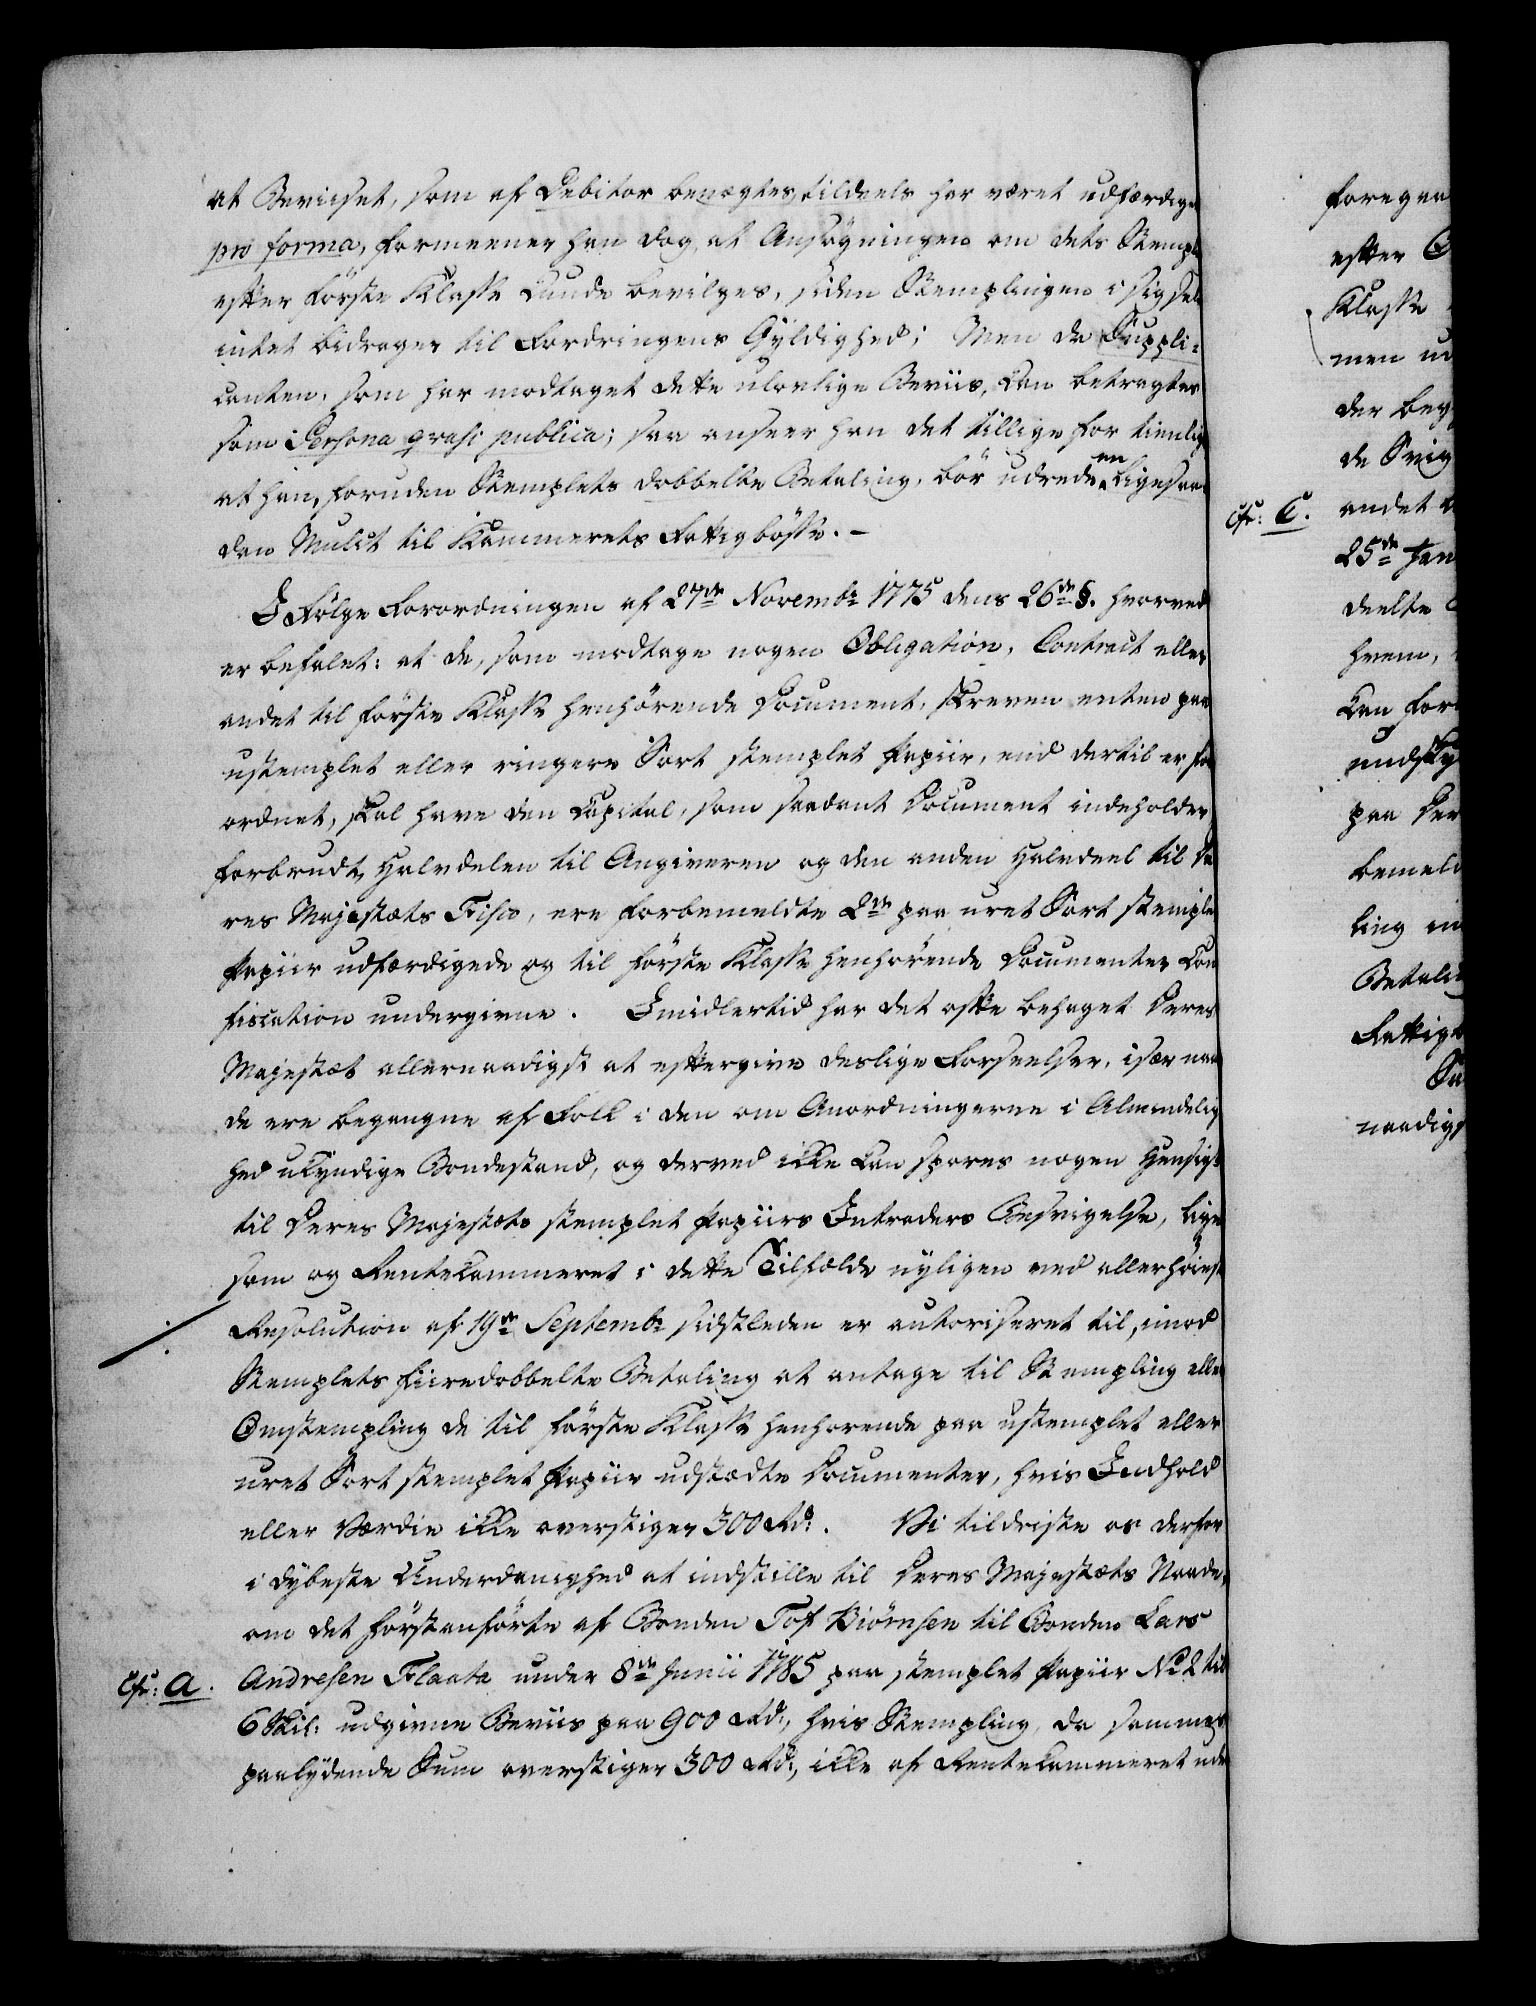 at Beviiset, som af Debitor benægtes, tildeels har været udfærdiget
pro forma, formeener han dog, at Ansøgningen om dets Stempl
efter første Klasse kunde bevilges, siden Stemplingen i sig selv
intet bidrager til Fordringens Gyldighed; Men da Suppli-
canten, som har modtaget dette ulovlige Beviis, kan betragtes
som Persona qvasi publica; saa anseer han det tillige for tienlig
at han, foruden Stemplets dobbelte Betaling, bør udrede en ligesaa-
dan Mulct til Kammerets Fattigbøsse. –
I Følge Forordningen af 27de Novembr 1775 dens 26de §. hvorved
er befalet: at de, som modtage nogen Obligation, Contract eller
andet til første Klasse henhørende Document, skreven enten paa
ustemplet eller ringere Sort stemplet Papiir, end dertil er for
ordnet, skal have den Capital, som saadant Document indeholder,
forbrudt, Halvdelen til Angiveren og den anden Halvdeel til De
res Majestæts Fisco, ere forbemeldte 2de paa uret Sort stemplet
Papiir udfærdigede og til første Klasse henhørende Documenter Con
fiscation undergivne. Imidlertid har det ofte behaget Deres
Majestæt allernaadigst at eftergive deslige Forseelser, især naar
de ere begangne af Folk i den om Anordningerne i Almindelig
hed ukyndige Bondestand, og derved ikke kan spores nogen Hensigt
til Deres Majestæts stemplet Papiirs Intraders Besvigelse, lige
som og Rentekammeret i dette Tilfælde nyligen ved allerhøieste
Resolution af 19de Septembr sidstleden er autoriseret til, imod
Stemplets fiiredobbelte Betaling at antage til Stempling eller
Omstempling de til første Klasse henhørende paa ustemplet eller
uret Sort stemplet Papiir udstædte Documenter, hvis Indhold
eller Værdie ikke overstiger 300 Rd:. Vi tildriste os derfor
i dybeste Underdanighed at indstille til Deres Majestæts Naade,
om det førstanførte af Bonden Tof Biørnsen til Bonden Lars
Cfr: A. Andresen Flaata under 8de Junii 1785 paa stemplet Papiir No 2 til
6 Skil: udgivne Beviis paa 900 Rd:, hvis Stempling, da sammes
paalydende Sum overstiger 300 Rd:, ikke af Rentekammeret uden
foregaa
efter
Klasse
men ud
der beg
de Svig
Cfr: C. andet
25de Jan
deelte
hvem,
kan for
undsky
paa Der
bemeld
ling in
Betaling
Fattig
Sa
naadigs